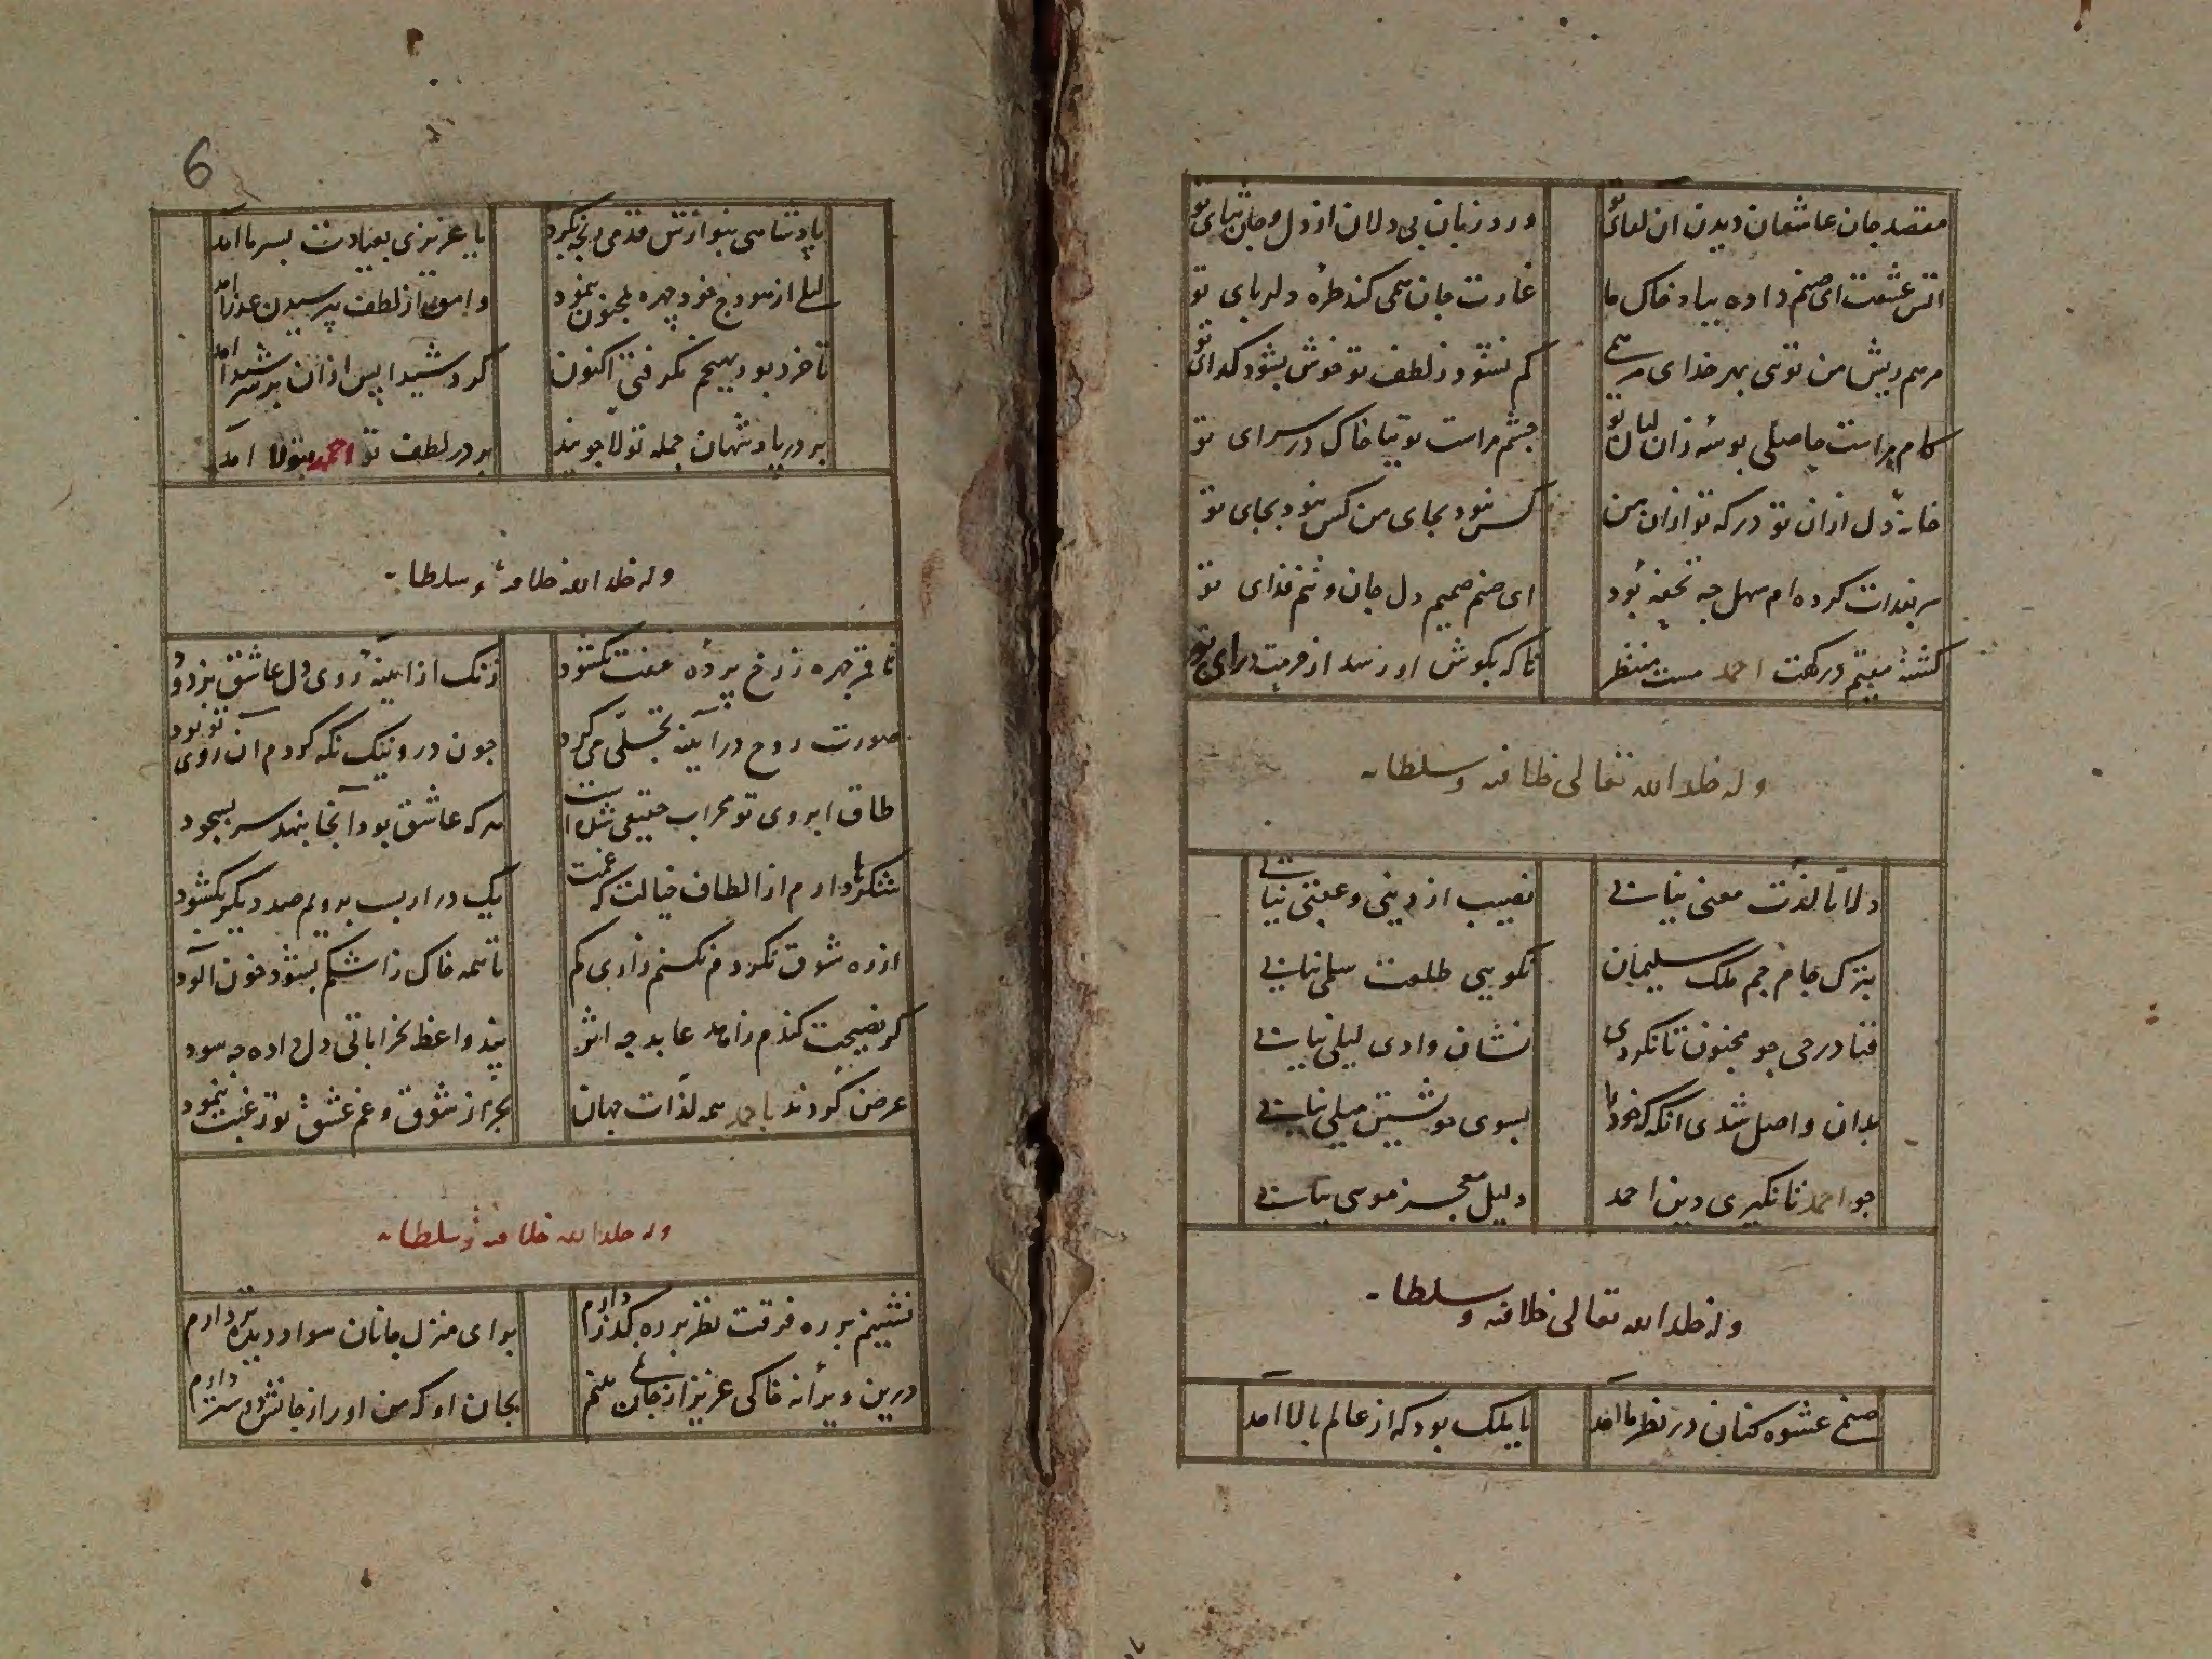 مقصد جان عاشقان دیدن ان لقای تو
ورد زبان بی دلان از دل و جان ثنای تو
اتش عشقت ای صنم داده بباد خاک ما
غارت جان همی کند طره دلربای تو
مرهم ریش من توی بهر خدای مرهمی
کم نشود ز لطف تو خوش بشود کدای تو
کام مراست حاصلی بوسه زان لبان تو
چشم مراست توتیا خاک در سرای تو
خانه دل ازان تو در که تو ازان من
کس نبود بجای من کس نبود بجای تو
سر بفدات کرده ام سهل چه تحفه بود
ای صنم صمیم دل جان و تنم فدای تو
کشته مقیم درکهت احمد مست منتظر
تا که بکوش او رسد از حرمت درای تو
وله خلد الله تعالی خلافته وسلطانه
دلا تا لذت معنی نیابی
نصیب از دینی و عقبی نیابی
بترک جام جم ملک سلیمان
نکویی طلعت سلمی نیابی
فنا در حی جو مجنون تا نکردی
نشان وادی لیلی نیابی
بدان واصل شدی انکه که خود را
بسوی خویشتن میلی نیابی
جو احمد تا نکیری دین احمد
دلیل معجز موسی نیابی
وله خلد الله تعالی خلافته وسلطانه
صنمی عشوه کنان در نظر ما امد
یا ملک بود که از عالم بالا امد
6
پادشاهی بنوازش قدمی رنجه نکرد
یا عزیزی بعیادت بسر ما امد
لیلی از هودج خود چهره بمجنون بنمود
وامق از لطف پرسیدن عذرا امد
تا خرد بود بهیچم نکرفتی اکنون
کرد شیدا پس ازان بر سر شیدا امد
بر در یاد شهان جمله تولا جویند
بر در لطف تو احمد بتولا امد
وله خلد الله خلافته وسلطانه
تا قمر چهره ز رخ پرده عفت بکشود
زنک از اینه روی دل عاشق بزدود
صورت روح در آینه تجلی می کرد
جون درو نیک نکه کردم ان روی تو بود
طاق ابروی تو محراب حقیقی شده است
هر که عاشق بود آنجا بنهد سر بسجود
شکرها دارم از الطاف خیالت که غمت
یک در ار بست برویم صد دیکر بکشود
از ره شوق نکردم نکنم زاری کم
تا همه خاک ز اشکم بشود خون آلود
کر نصیحت کندم زاهد عابد چه اثر
پند واعظ بخراباتی دل داده چه سود
عرض کردند باحمد همه لذات جهان
بجز از شوق و غم عشق تو رغبت ننمود
وله خلد الله خلافته وسلطانه
نشینم بر ره فرقت نظر بر ره کذر دارم
برای منزل جانان سواد دیده تر دارم
درین ویرانه خاکی عزیز از جان منم
بجان او که من او را ز جانش دوستر دارم